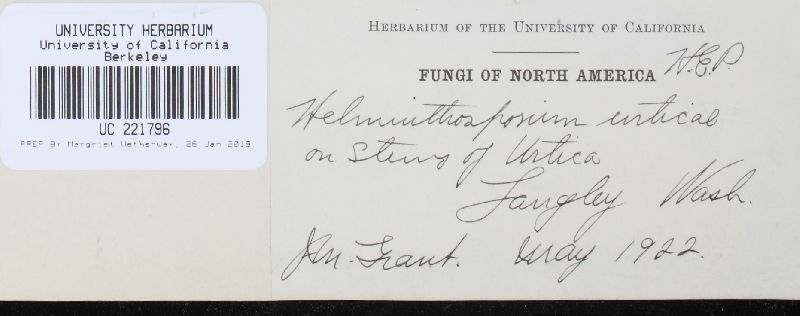 UNIVERSITY HERBARIUM
University of California
Berkeley
UC 221796
PREP BY Margriet Wetherwax, 26 Jan 2019
HERBARIUM OF THE UNIVERSITY OF CALIFORNIA
FUNGI OF NORTH AMERICA H.E.P.
Helminthosporium urticae
on Stems of Urtica
Langley Wash.
J.M. Grant. May 1922.